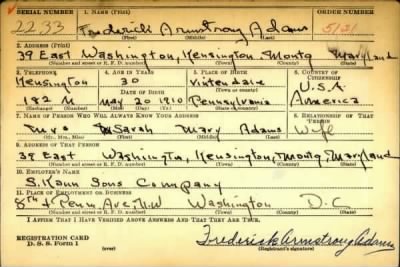 SERIAL NUMBER 1. NAME (Print) ORDER NUMBER
2233 Frederick Armstrong Adams 5121
(First) (Middle) (Last)
2. ADDRESS (Print)
39 East Washington, Kensington, Montg Maryland
(Number and street or R. F. D. number) (Town) (County) (State)
3. TELEPHONE 4. AGE IN YEARS 5. PLACE OF BIRTH 6. COUNTRY OF CITIZENSHIP
Kensington 30 U.S.A
DATE OF BIRTH (Town or county)
182 May 20 1910 Pennsylvania America
(Exchange) (Number) (Mo.) (Day) (Yr.) (State or country)
7. NAME OF PERSON WHO WILL ALWAYS KNOW YOUR ADDRESS 8. RELATIONSHIP OF THAT PERSON
Mrs Sarah Mary Adams Wife
(Mr., Mrs., Miss) (First) (Middle) (Last)
9. ADDRESS OF THAT PERSON
39 East Washington, Kensington, Montg, Maryland
(Number and street or R. F. D. number) (Town) (County) (State)
10. EMPLOYER'S NAME
S. Kann Sons Company
11. PLACE OF EMPLOYMENT OR BUSINESS
8th & Penn. Ave, N.W Washington D.C
(Number and street or R. F. D. number) (Town) (County) (State)
I AFFIRM THAT I HAVE VERIFIED ABOVE ANSWERS AND THAT THEY ARE TRUE.
REGISTRATION CARD
D. S. S. Form 1 (over) Frederick Armstrong Adams
(Registrant's signature)